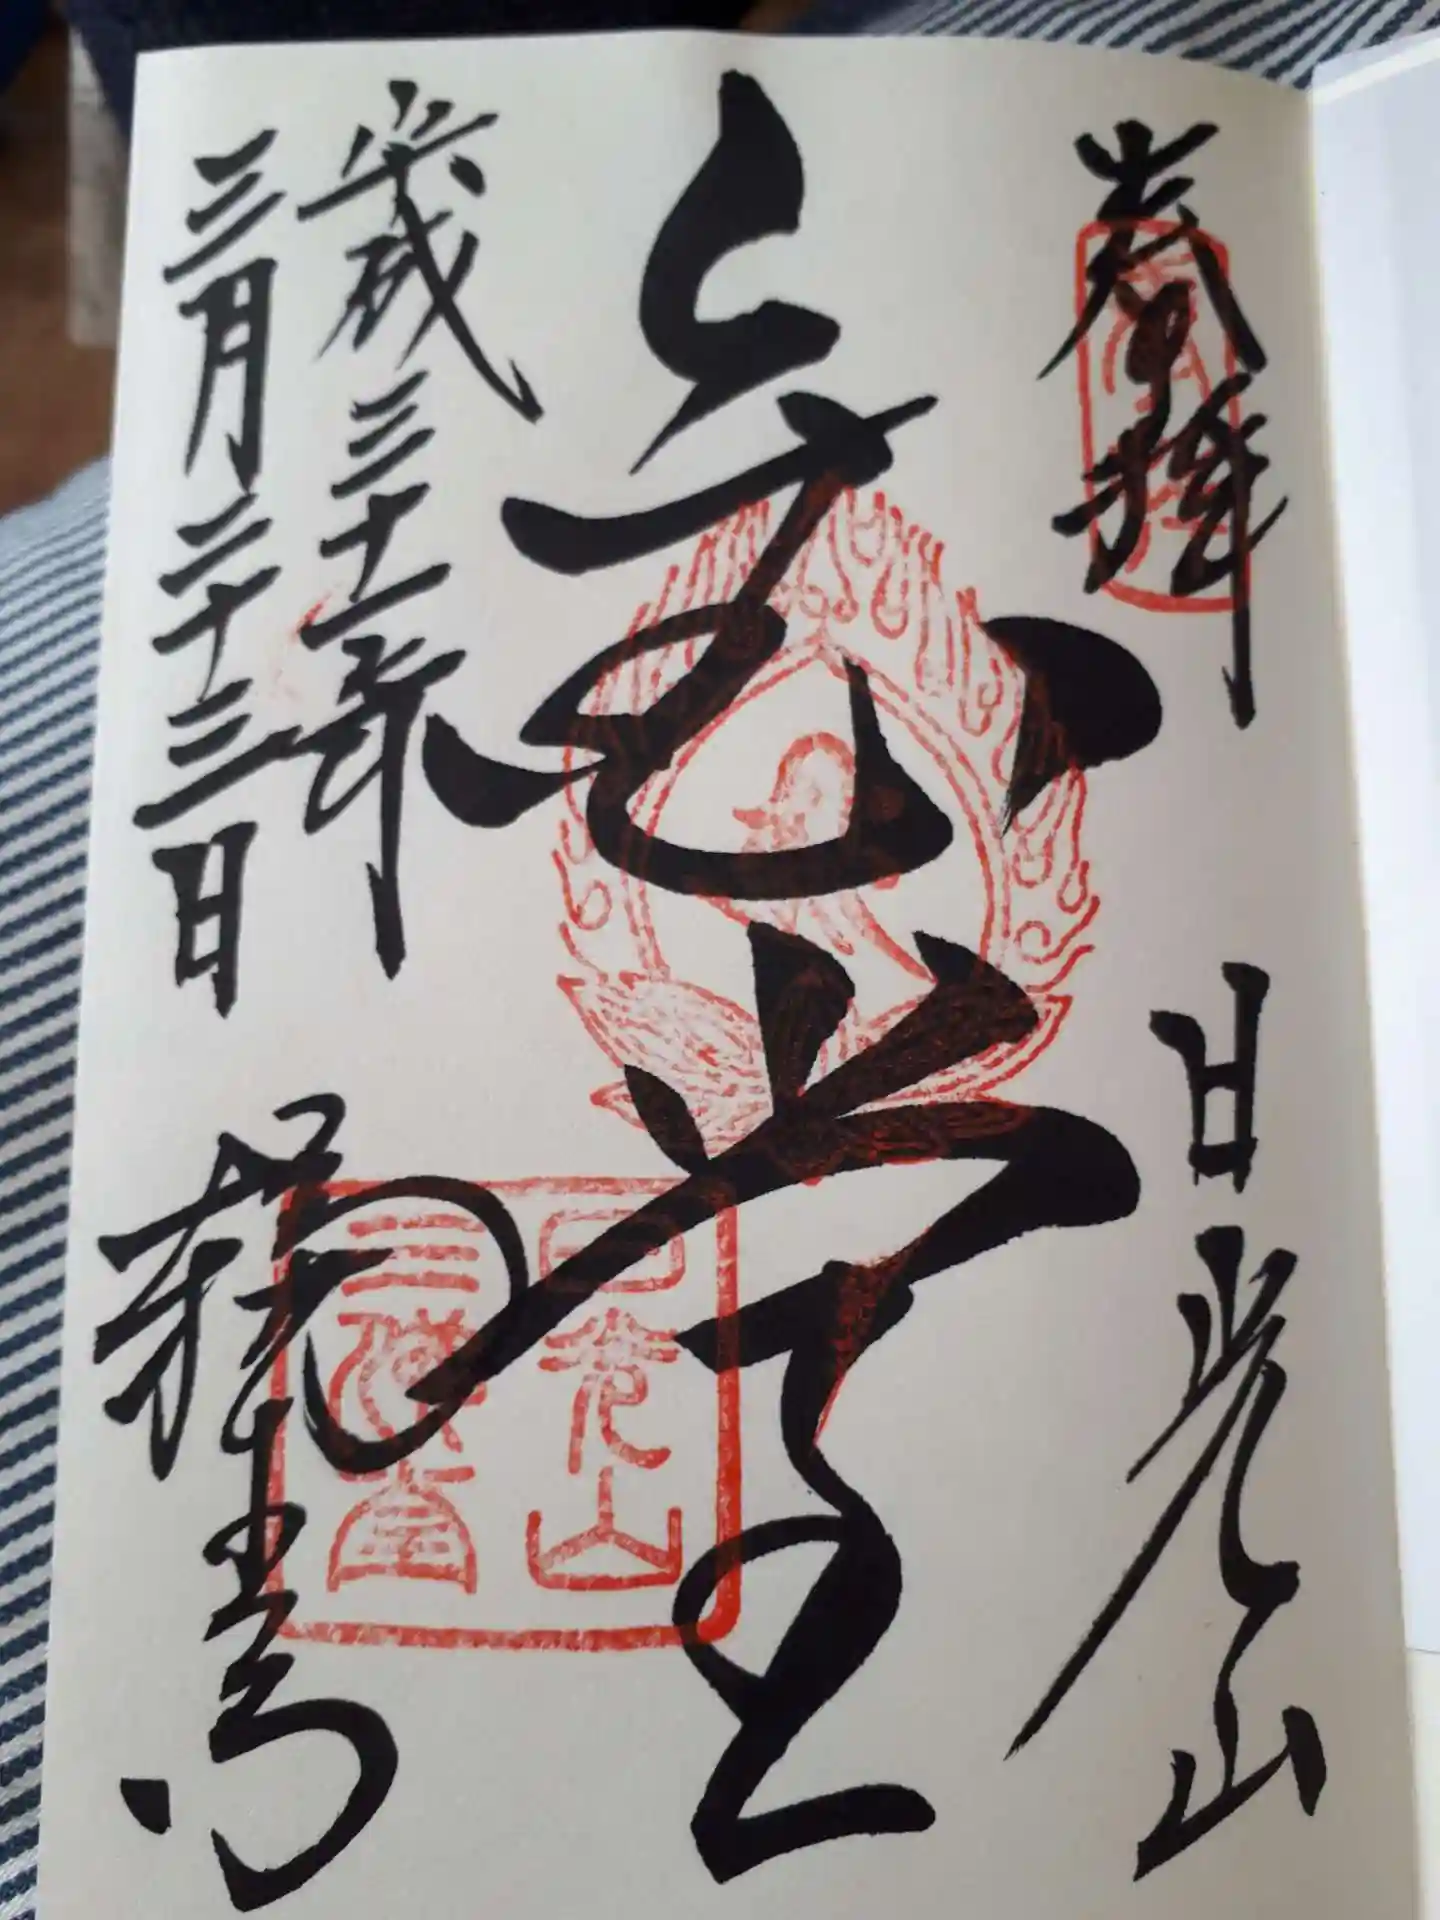 奉拝 日光山
金堂
平成三十一年
三月二十三日 輪王寺
日光山
三佛堂